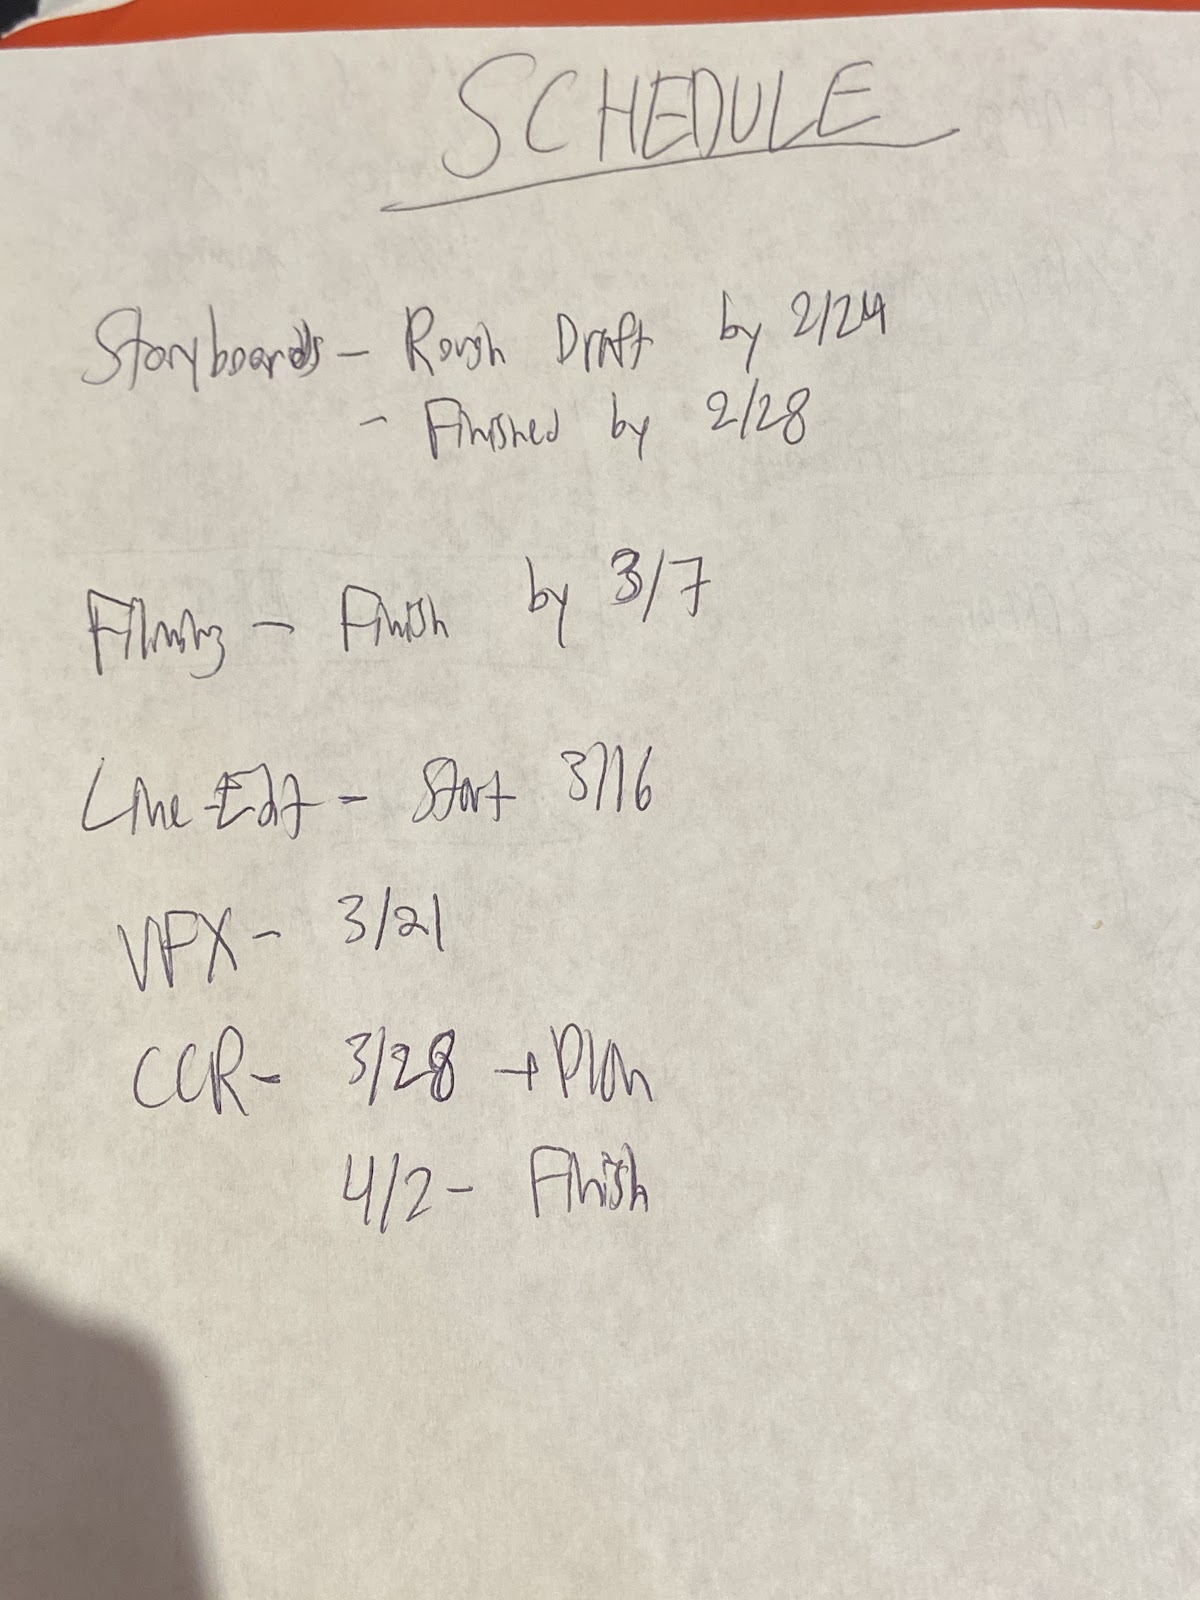 SCHEDULE
Storyboards - Rough Draft by 2/24
- Finished by 2/28
Filming - Finish by 3/7
Line Edit - Start 3/16
VFX - 3/21
CCR - 3/28 → Plan
4/2 - Finish